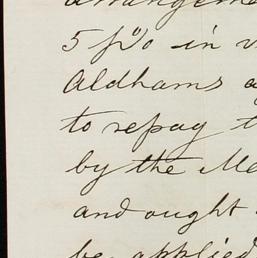 arrangeme
5 p% in
Aldhams a
to repay t
by the Me
and ought
be applied